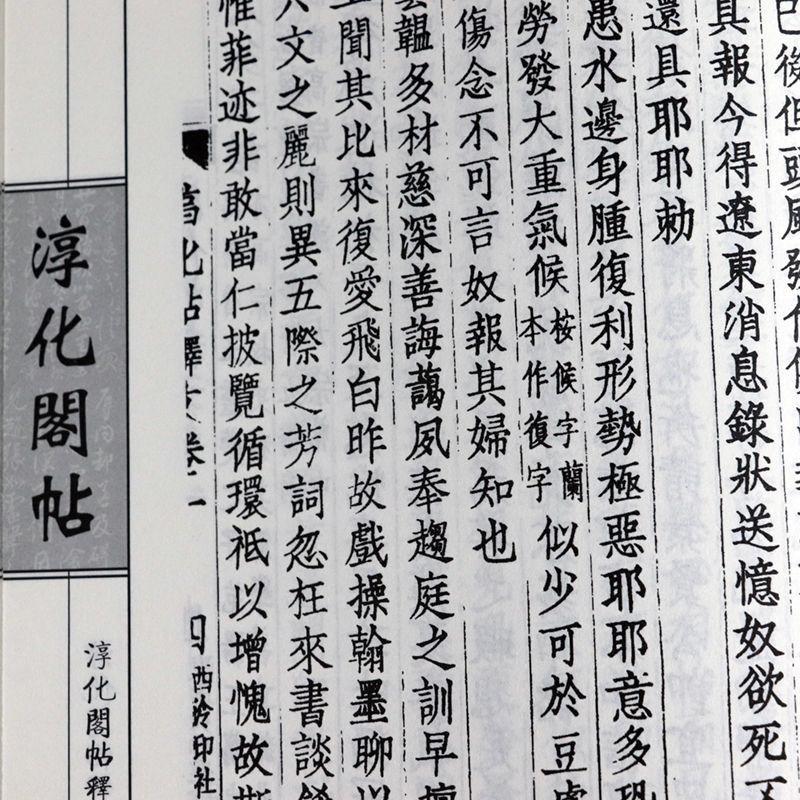 巳後但頭風發信
具報今得遼東消息錄狀送憶奴欲死
還具耶耶勅
患水邊身腫復利形勢極惡耶耶意多
勞發大重氣候桉候字蘭本作復字似少可於豆
傷念不可言奴報其婦知也
韞多材慈深善誨藹夙奉趨庭之訓早
聞其比來復愛飛白昨故戲操翰墨聊以
文之麗則異五際之芳詞忽枉來書談
惟菲迹非敢當仁披覽循環祗以增愧故
化帖釋文卷一
四
西泠印社
淳化閣帖
淳化閣帖釋